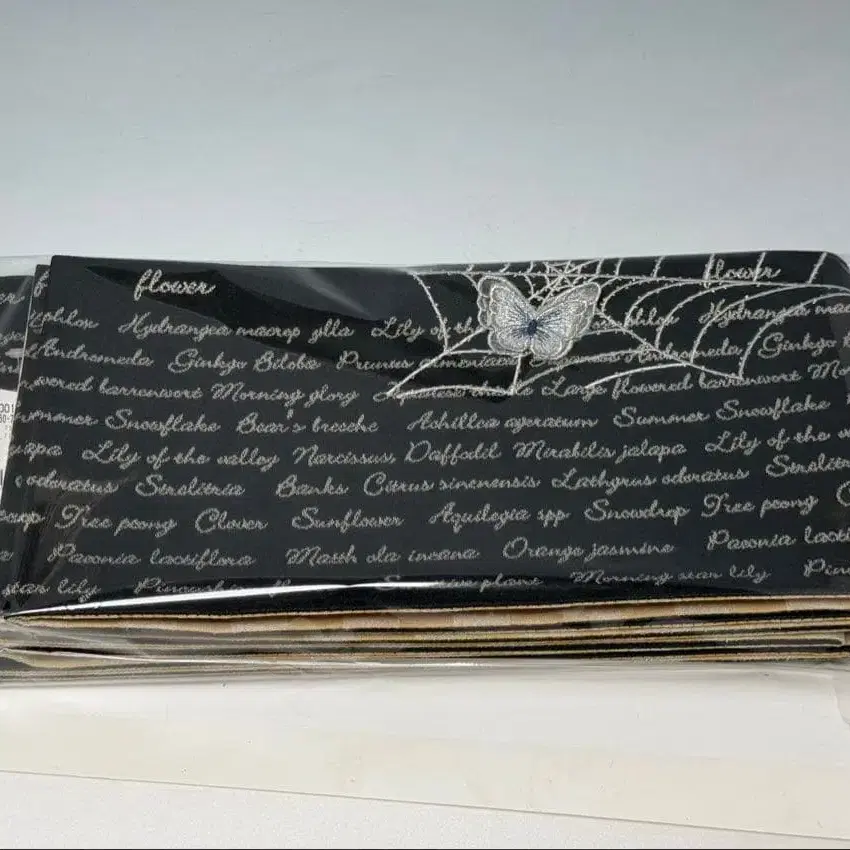 flower flower
Hydrangea macrop ylla Lily of th Hydrangea mac
Andromeda Ginkgo Biloba Prunus armeniaca Andromeda Ginkgo
wered barrenwort Morning glory Large flowered barrenwort Mo
ummer Snowflake Bear's breeche Achillea ageratum Summer Snowflake
apa Lily of the valley Narcissus, Daffodil Mirabilis jalapa Lily of the va
odoratus Strelitria Banks Citrus sinenensis Lathyrus odoratus Strelitr
Tree peony Clover Sunflower Aquilegia spp Snowdrop Tree peony
Paeonia lactiflora Matth ola incana Orange jasmine Paeonia lacti
star lily plant Morning star lily